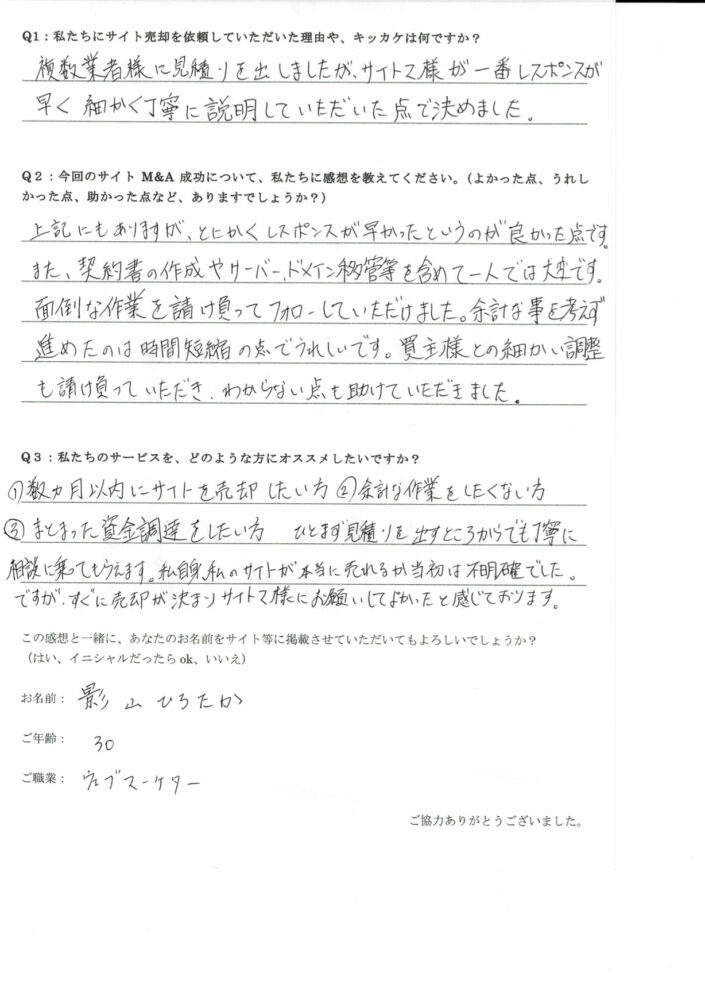 Q1：私たちにサイト売却を依頼していただいた理由や、キッカケは何ですか？
複数業者様に見積りを出しましたが、サイトマ様が一番レスポンスが
早く 細かく丁寧に説明していただいた点で決めました。
Q2：今回のサイト M&A 成功について、私たちに感想を教えてください。（よかった点、うれし
かった点、助かった点など、ありますでしょうか？）
上記にもありますが、とにかくレスポンスが早かったというのが良かった点です。
また、契約書の作成やサーバー、ドメイン移管等を含めて一人では大変です。
面倒な作業を請け負ってフォローしていただけました。余計な事を考えず
進めたのは時間短縮の点でうれしいです。買主様との細かい調整
も請け負っていただき、わからない点も助けていただきました。
Q3：私たちのサービスを、どのような方にオススメしたいですか？
①数カ月以内にサイトを売却したい方 ②余計な作業をしたくない方
③まとまった資金調達をしたい方 ひとまず見積りを出すところからでも丁寧に
相談に乗ってもらえます。私自身、私のサイトが本当に売れるか当初は不明確でした。
ですが、すぐに売却が決まりサイトマ様にお願いしてよかったと感じております。
この感想と一緒に、あなたのお名前をサイト等に掲載させていただいてもよろしいでしょうか？
（はい、イニシャルだったら ok、いいえ）
お名前： 影山 ひろたか
ご年齢： 30
ご職業： ウェブマーケター
ご協力ありがとうございました。